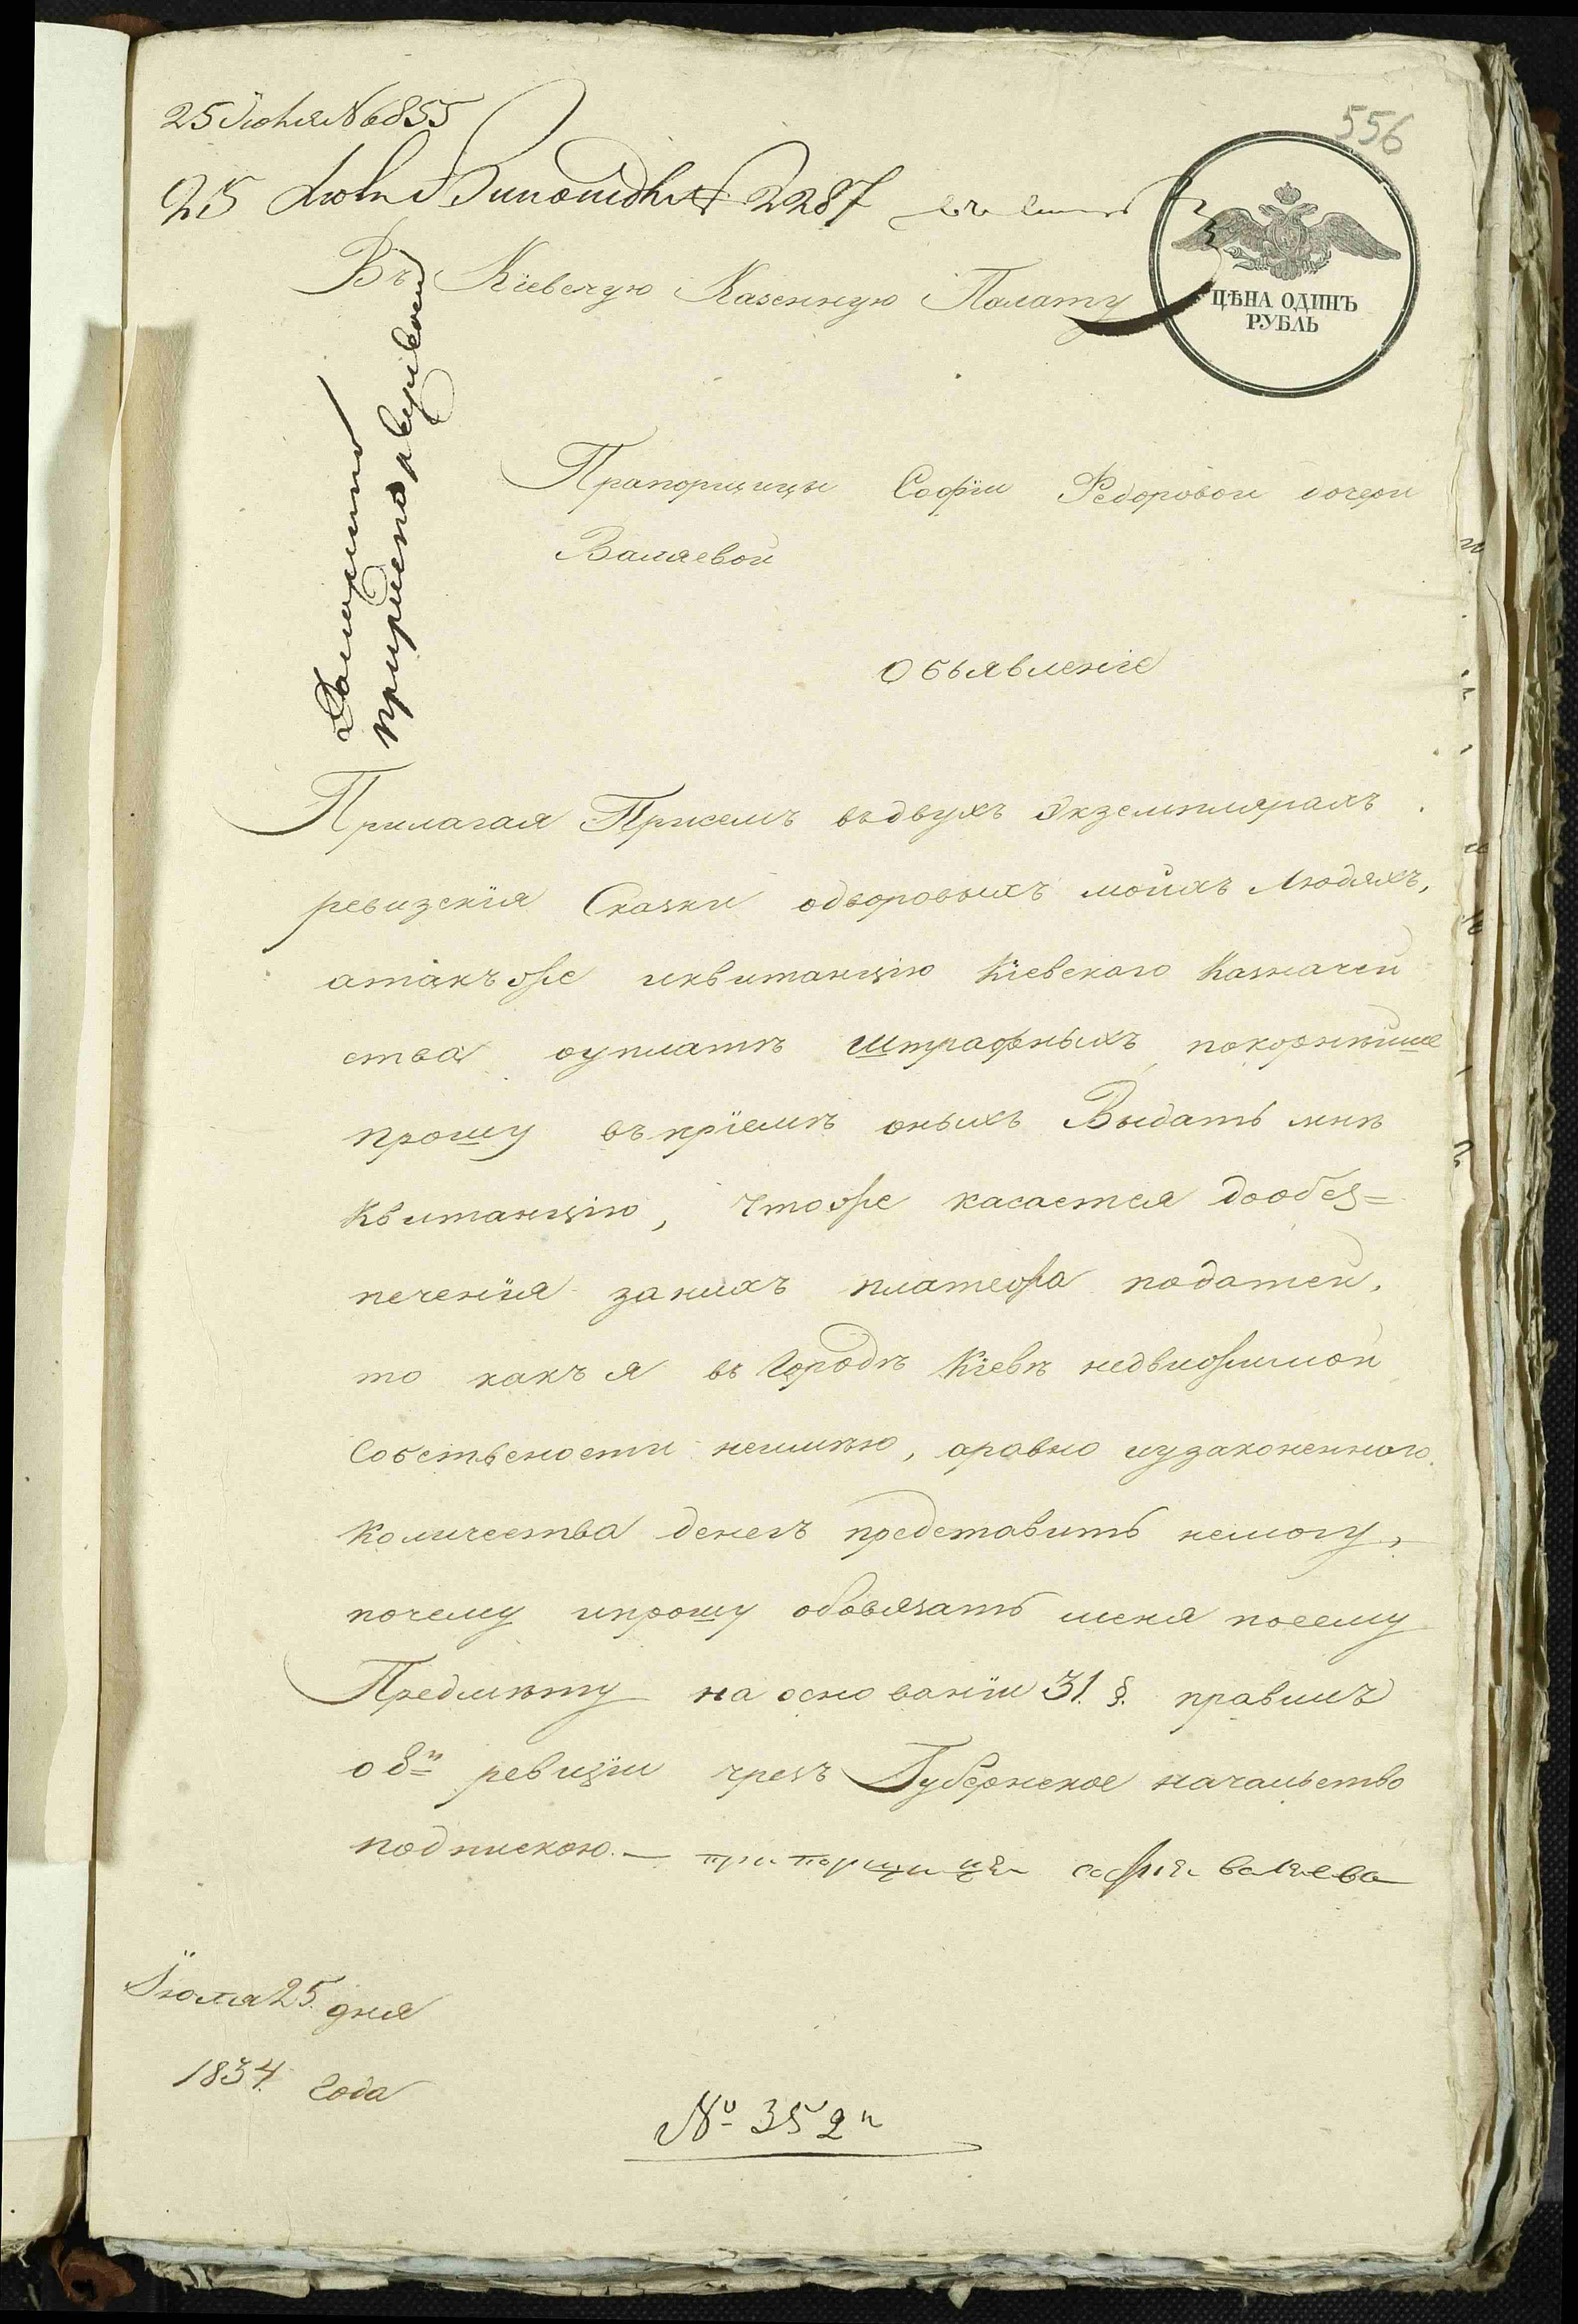 25 Июня № 6855
556
25 Июня № 2287
ЦѢНА ОДИНЪ
РУБЛЬ
Въ Кіевскую Казенную Палату
Прапорщицы Софіи Федоровой дочери
Валяевой
Объявленіе
Прилагая Присемъ въдвухъ Экземплярахъ
ревизскія Сказки одворовыхъ моихъ Людяхъ,
атакъже иквитанцію Кіевского Казначей
ства оуплатѣ штрафныхъ покорнѣйше
прошу въпріемѣ оныхъ Выдать мнѣ
Квитанцію, Чтоже касается дообез=
печенія занихъ платежа податей,
то какъ я въ Городѣ Кіевѣ недвижимой
Собствености неимѣю, аравно иузаконенного
Количества денегъ представить немогу,
почему ипрошу обовязать меня посему
Предмѣту на основаніи 31. §. правилъ
о 8й ревизіи чрезъ Губернское начальство
подпискою. — прапорщица софия валяева
Іюля 25. дня
1834. Года
№ 352й